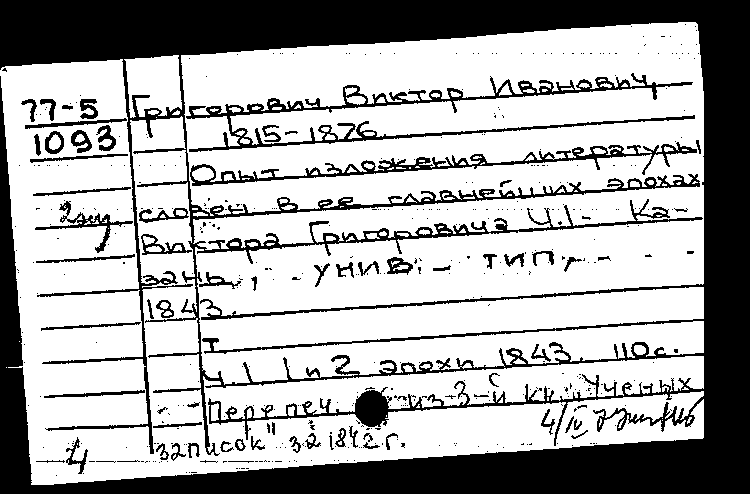 77-5 Григорович, Виктор Иванович,
1093 1815-1876.
Опыт изложения литературы
2 экз. словен в ее главнейших эпохах
Виктора Григоровича Ч.1- Ка-
зань, унив. тип.,
1843.
т
Ч.1 1 и 2 эпохи 1843. 110с.
Перепеч. из 3-й кн. „Ученых
записок" за 1842 г.
4/IV
4